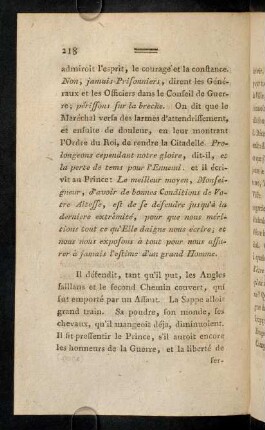 218
admiroit l'esprit, le courage et la constance.
Non, jamais Prisonniers, dirent les Géné-
raux et les Officiers dans le Conseil de Guer-
re; périssons sur la breche. On dit que le
Maréchal versa des larmes d'attendrissement,
et ensuite de douleur, en leur montrant
l'Ordre du Roi, de rendre la Citadelle. Pro-
longeons cependant notre gloire, dit-il, et
la perte de tems pour l'Ennemi. et il écri-
vit au Prince: Le meilleur moyen, Monsei-
gneur, d'avoir de bonnes Conditions de Vo-
tre Altesse, est de se défendre jusqu'à la
derniere extrêmité, pour que nous méri-
tions tout ce qu'Elle daigne nous écrire; et
nous nous exposons à tout pour nous assu-
rer à jamais l'estime d'un grand Homme.
Il défendit, tant qu'il put, les Angles
saillans et le second Chemin couvert, qui
fut emporté par un Assaut. La Sappe alloit
grand train. Sa poudre, son monde, ses
chevaux, qu'il mangeoit déja, diminuoient.
Il fit pressentir le Prince, s'il auroit encore
les honneurs de la Guerre, et la liberté de
ser-